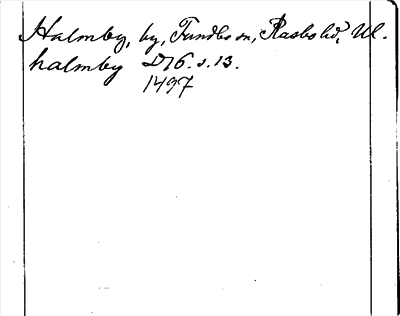 Halmby, by, Funbo sn, Rasbo hd, Ul.
halmby D16. s. 13.
1497